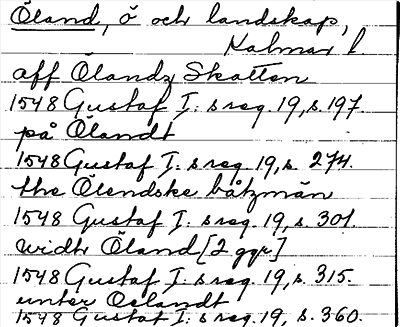 Öland, ö och landskap,
Kalmar l.
aff Ölandz Skatten
1548 Gustaf I:s reg. 19, s. 197.
på Ölandt
1548 Gustaf I:s reg. 19, s. 274.
the Ölendske båtzmän
1548 Gustaf I:s reg. 19, s. 301.
widh Öland [2 ggr.]
1548 Gustaf I:s reg. 19, s. 315.
unter Oelandt
1548 Gustaf I:s reg. 19, s. 360.